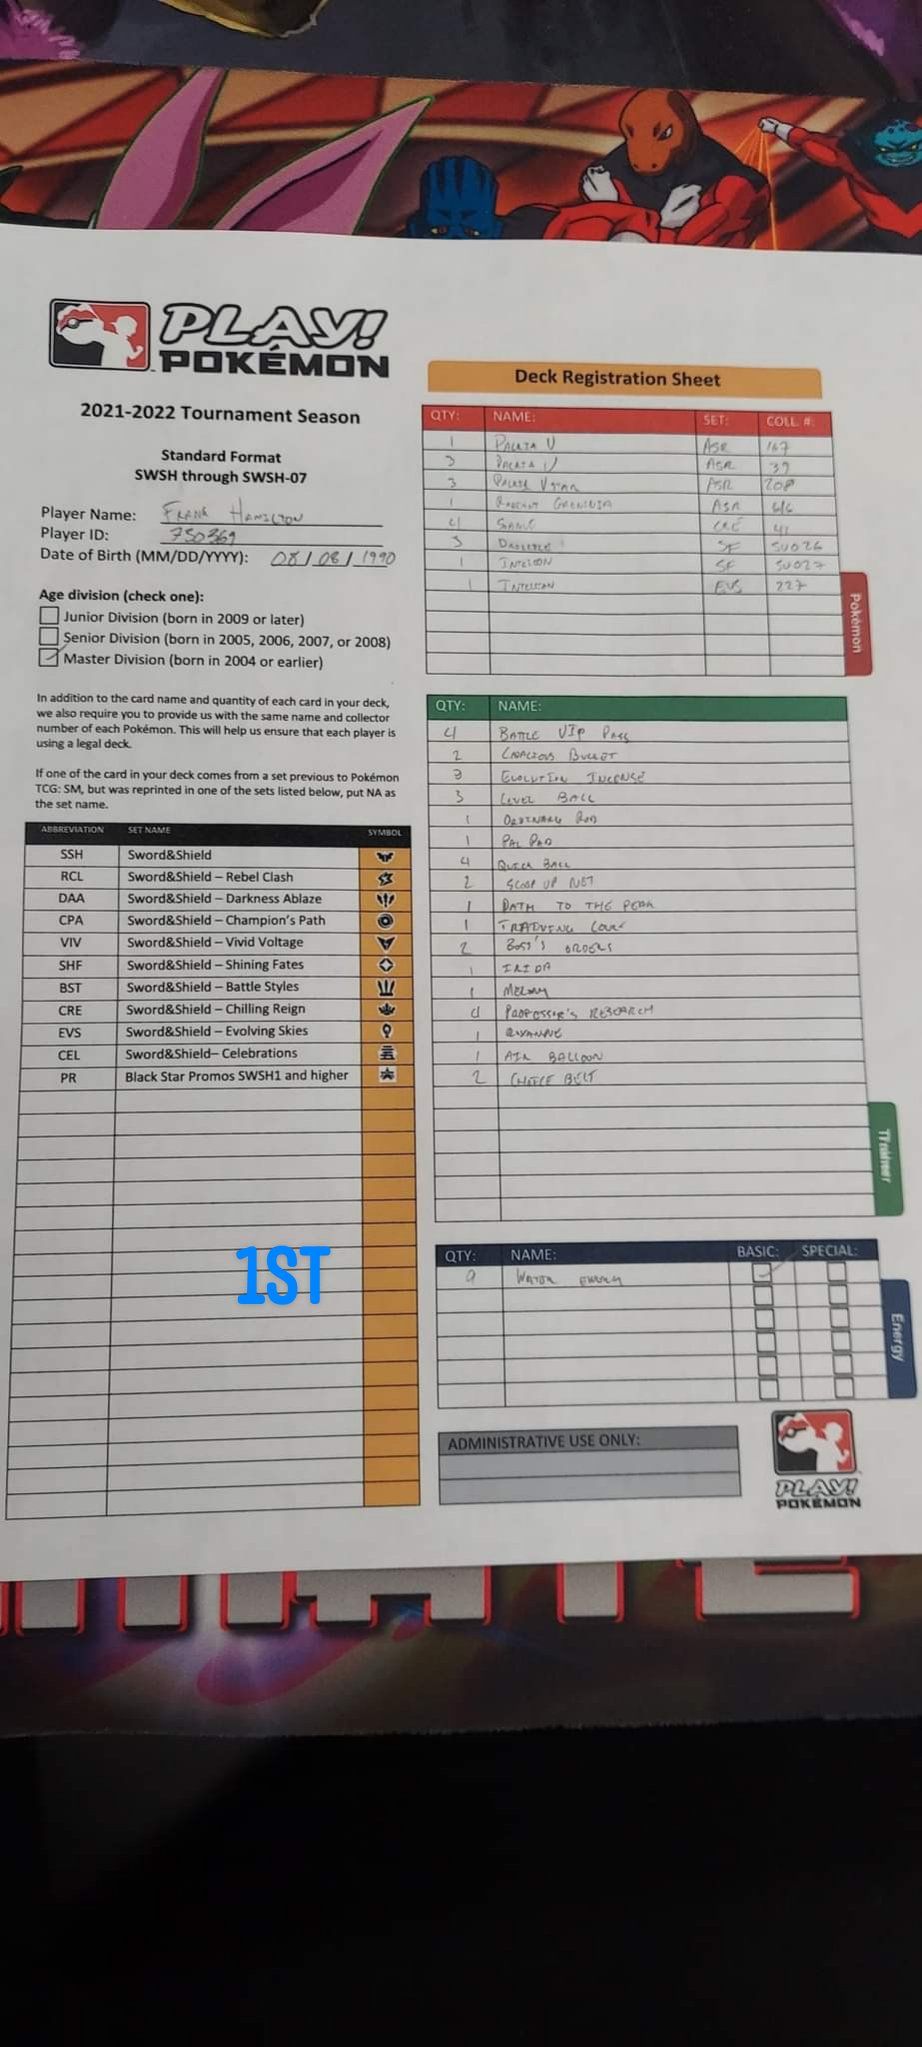 PLAY!
POKÉMON
2021-2022 Tournament Season
Standard Format
SWSH through SWSH-07
Player Name: FRANK HAMILTON
Player ID: 750369
Date of Birth (MM/DD/YYYY): 08/08/1990
Age division (check one):
Junior Division (born in 2009 or later)
Senior Division (born in 2005, 2006, 2007, or 2008)
Master Division (born in 2004 or earlier)
In addition to the card name and quantity of each card in your deck,
we also require you to provide us with the same name and collector
number of each Pokémon. This will help us ensure that each player is
using a legal deck.
If one of the card in your deck comes from a set previous to Pokémon
TCG: SM, but was reprinted in one of the sets listed below, put NA as
the set name.
ABBREVIATION SET NAME SYMBOL
SSH Sword&Shield
RCL Sword&Shield – Rebel Clash
DAA Sword&Shield – Darkness Ablaze
CPA Sword&Shield – Champion's Path
VIV Sword&Shield – Vivid Voltage
SHF Sword&Shield – Shining Fates
BST Sword&Shield – Battle Styles
CRE Sword&Shield – Chilling Reign
EVS Sword&Shield – Evolving Skies
CEL Sword&Shield– Celebrations
PR Black Star Promos SWSH1 and higher
1ST
Deck Registration Sheet
QTY: NAME: SET: COLL. #:
1 PALKIA V ASR 167
3 PALKIA V ASR 39
3 PALKIA VSTAR ASR 208
1 RADIANT GRENINJA ASR
4 CRE 41
3 SF SV026
1 INTELEON SF SV027
1 INTELEON EVS 227
Pokémon
QTY: NAME:
4 BATTLE VIP PASS
2 CAPACIOUS BUCKET
3 EVOLUTION INCENSE
3 LEVEL BALL
1 ORDINARY ROD
1 PAL PAD
4 QUICK BALL
2 SCOOP UP NET
1 PATH TO THE PEAK
1
2 BOSS'S ORDERS
1 IRIDA
1 MELONY
4 PROFESSOR'S RESEARCH
1 ROXANNE
1 AIR BALLOON
2 CHOICE BELT
Trainer
QTY: NAME: BASIC: SPECIAL:
9 WATER ENERGY
Energy
ADMINISTRATIVE USE ONLY:
PLAY!
POKÉMON